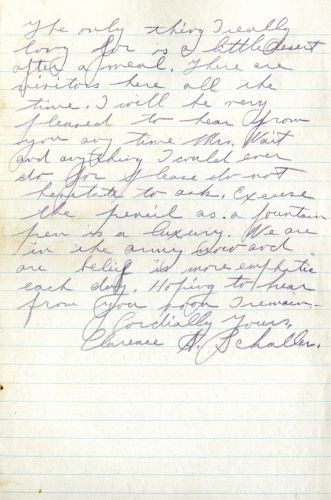 The only thing I really
long for is a little desert
after a meal. There are
visitors here all the
time. I will be very
pleased to hear from
you any time Mrs. Wait
and anything I could ever
do for please do not
hesitate to ask. Excuse
the pencil as a fountain
pen is a luxury. We are
in the army now and
are belief is more emphatic
each day. Hoping to hear
from you soon I remain-
Cordially Yours,
Clarence A. Schaller.